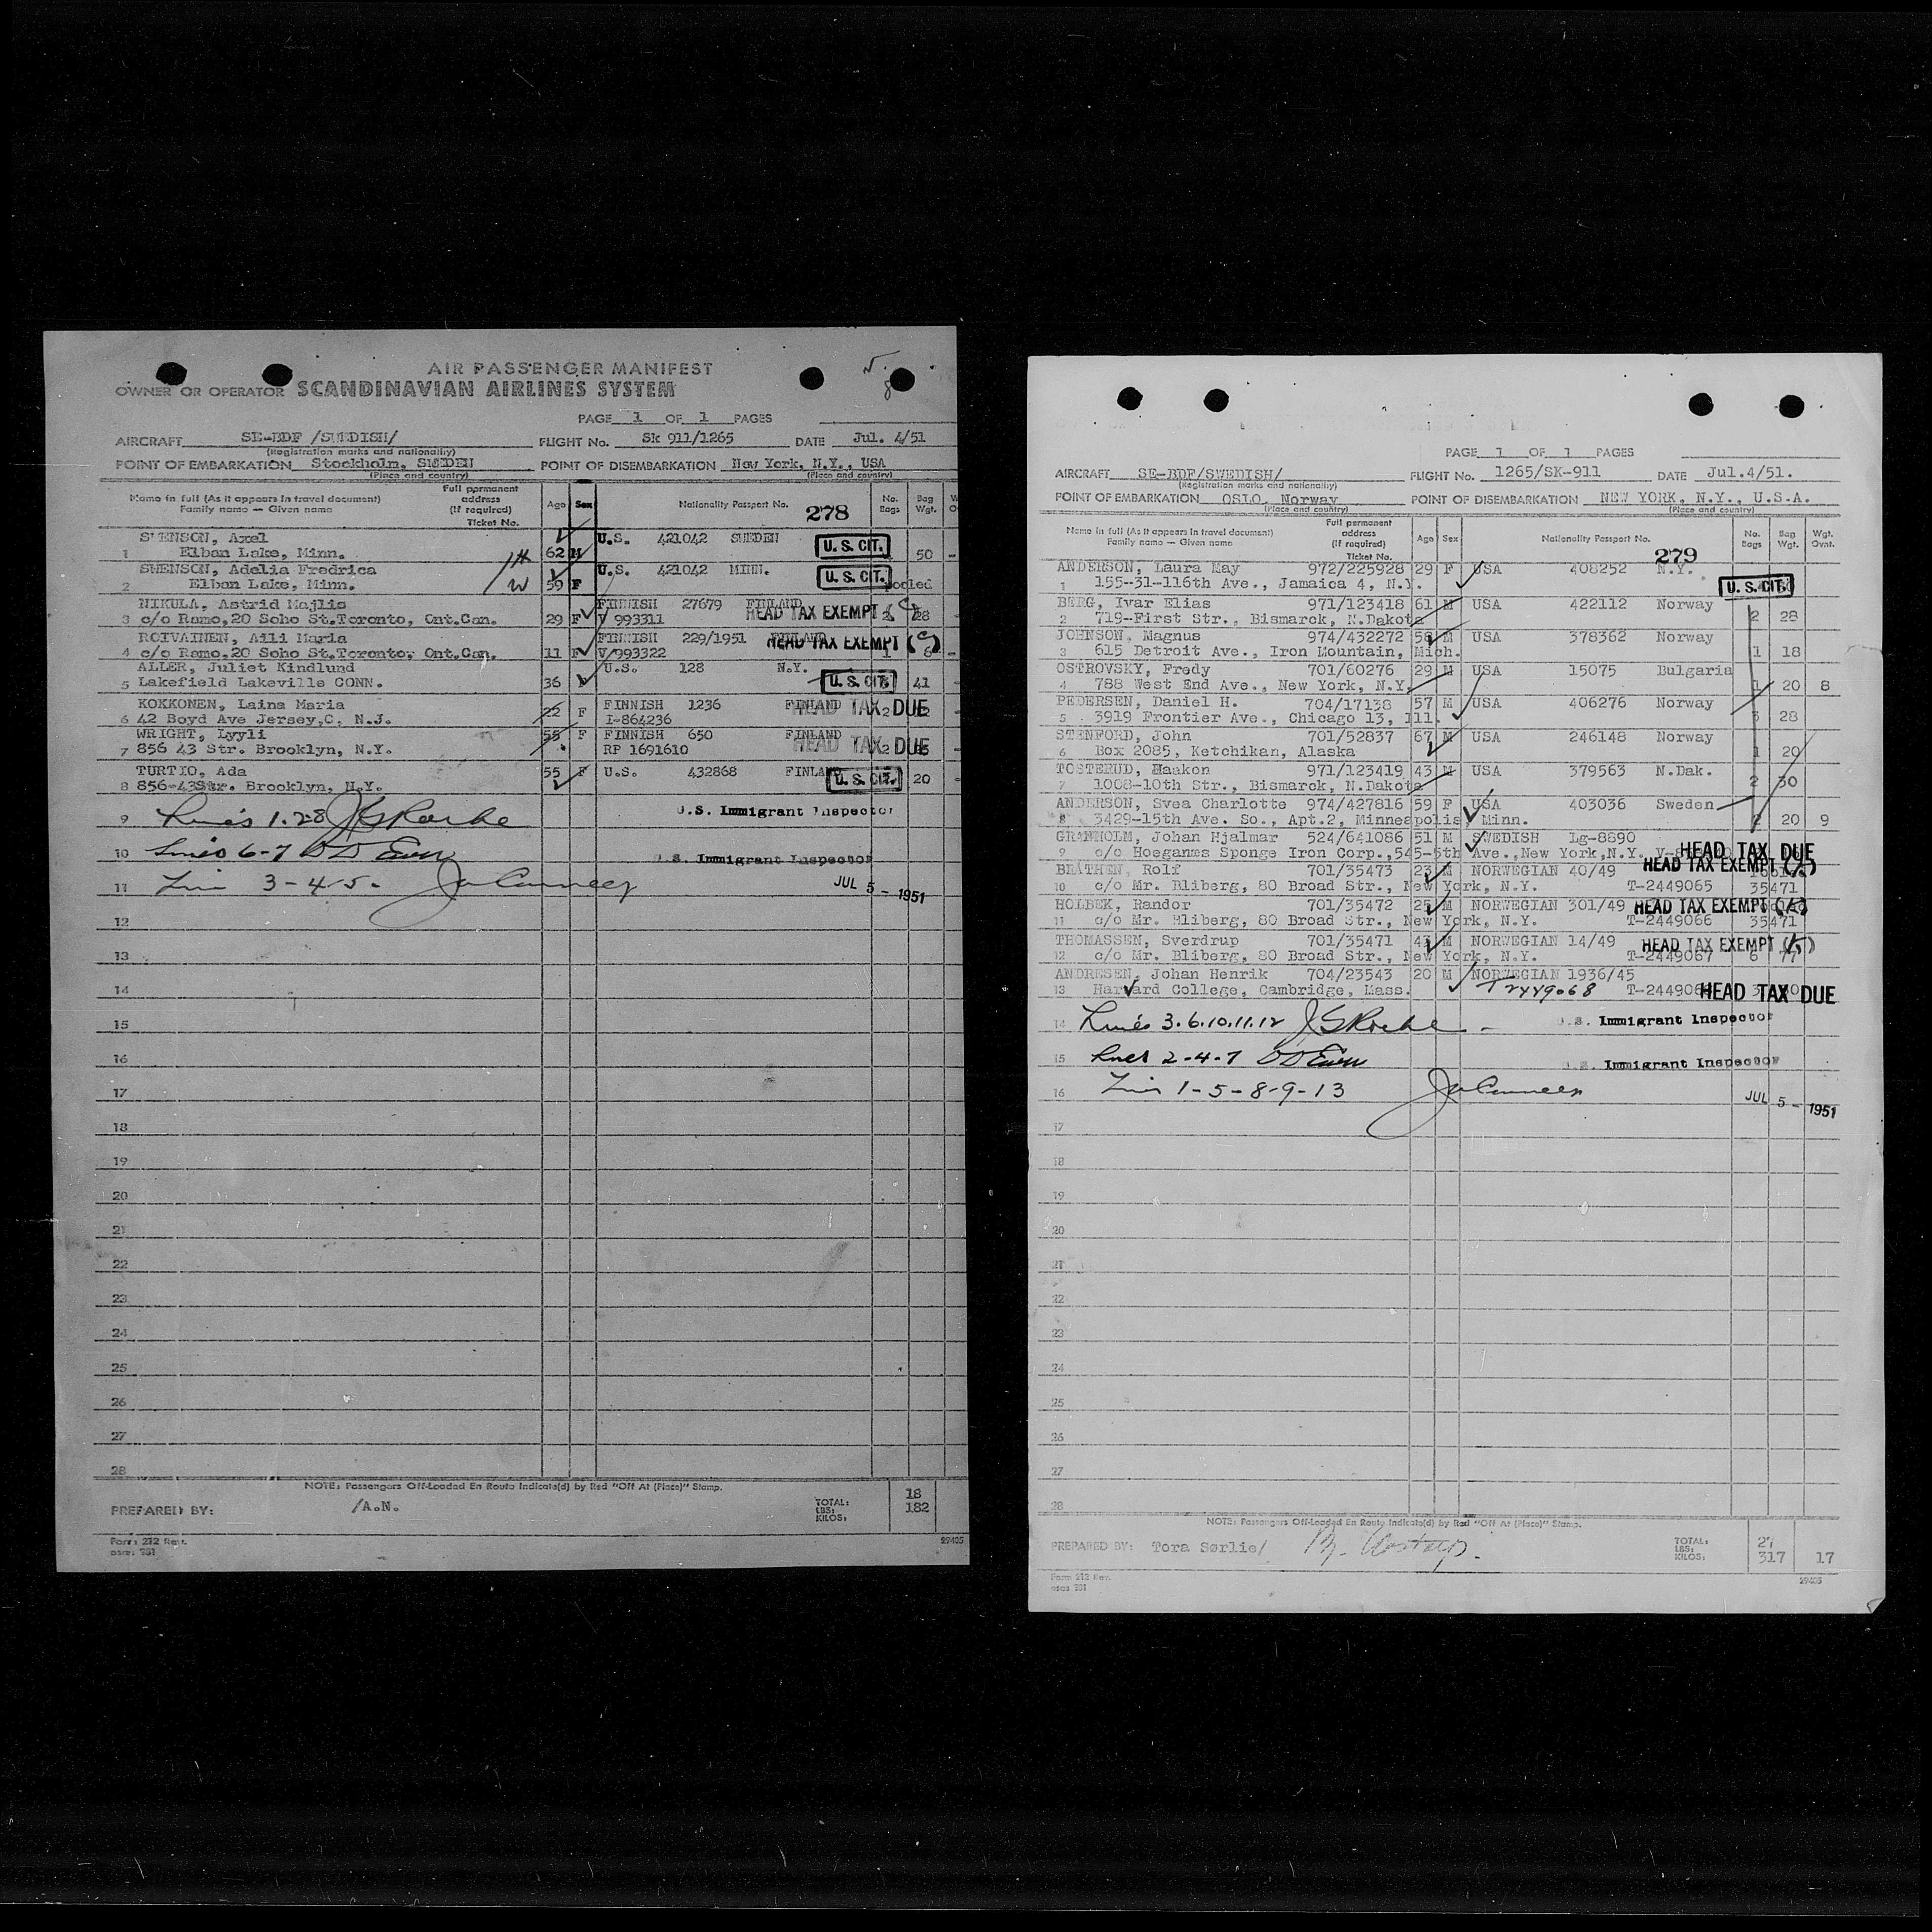 AIR PASSENGER MANIFEST
OWNER OR OPERATOR SCANDINAVIAN AIRLINES SYSTEM
PAGE 1 OF 1 PAGES
AIRCRAFT SE-BDF /SWEDISH/ FLIGHT No. Sk 911/1265 DATE Jul. 4/51
(Registration marks and nationality)
POINT OF EMBARKATION Stockholm, SWEDEN POINT OF DISEMBARKATION New York, N.Y., USA
(Place and country) (Place and country)
Name in full (As it appears in travel document) Family name — Given name Full permanent address (If required) Ticket No. Age Sex Nationality Passport No. 278 No. Bags Bag Wgt.
SWENSON, Axel U.S. 421042 SWEDEN
1 Elbon Lake, Minn. 62 M U. S. CIT. 50 -
SWENSON, Adelia Fredrica U.S. 421042 MINN.
2 Elbon Lake, Minn. 59 F U. S. CIT. pooled
NIKULA, Astrid Majlis FINNISH 27679 FINLAND
3 c/o Ramo,20 Soho St.Toronto, Ont.Can. 29 F V 993311 HEAD TAX EXEMPT
ROIVAINEN, Aili Maria FINNISH 229/1951 FINLAND
4 c/o Ramo,20 Soho St.Toronto, Ont.Can. 11 F V 993322 HEAD TAX EXEMPT
ALLER, Juliet Kindlund U.S. 128 N.Y.
5 Lakefield Lakeville CONN. 36 F U. S. CIT. 41
KOKKONEN, Laina Maria FINNISH 1236 FINLAND
6 42 Boyd Ave Jersey,C. N.J. 22 F I-864236 HEAD TAX DUE
WRIGHT, Lyyli 55 F FINNISH 650 FINLAND
7 856 43 Str. Brooklyn, N.Y. RP 1691610 HEAD TAX DUE
TURTIO, Ada 55 F U.S. 432868 FINLAND
8 856-43Str. Brooklyn, N.Y. U. S. CIT. 20
9 1-2-8 U.S. Immigrant Inspector
10 6-7 U.S. Immigrant Inspector
11 3-4-5. JUL 5 - 1951
12
13
14
15
16
17
18
19
20
21
22
23
24
25
26
27
28
NOTE: Passengers Off-Loaded En Route Indicate(d) by Red "Off At (Place)" Stamp.
PREPARED BY: /A.N. TOTAL: LBS: KILOS: 18 182
Form 212 Rev. 29405
PAGE 1 OF 1 PAGES
AIRCRAFT SE-BDF/SWEDISH/ FLIGHT No. 1265/SK-911 DATE Jul.4/51.
(Registration marks and nationality)
POINT OF EMBARKATION OSLO, Norway POINT OF DISEMBARKATION NEW YORK, N.Y., U.S.A.
(Place and country) (Place and country)
Name in full (As it appears in travel document) Family name — Given name Full permanent address (If required) Ticket No. Age Sex Nationality Passport No. 279 No. Bags Bag Wgt. Wgt. Ovnt.
ANDERSON, Laura May 972/225928 29 F USA 408252 N.Y.
1 155-31-116th Ave., Jamaica 4, N.Y. U. S. CIT.
BERG, Ivar Elias 971/123418 61 M USA 422112 Norway
2 719-First Str., Bismarck, N.Dakota 2 28
JOHNSON, Magnus 974/432272 58 M USA 378362 Norway
3 615 Detroit Ave., Iron Mountain, Mich. 1 18
OSTROVSKY, Fredy 701/60276 29 M USA 15075 Bulgaria
4 788 West End Ave., New York, N.Y. 1 20 8
PEDERSEN, Daniel H. 704/17138 57 M USA 406276 Norway
5 3919 Frontier Ave., Chicago 13, Ill. 3 28
STENFORD, John 701/52837 67 M USA 246148 Norway
6 Box 2085, Ketchikan, Alaska 1 20
TOSTERUD, Haakon 971/123419 43 M USA 379563 N.Dak.
7 1008-10th Str., Bismarck, N.Dakota 2 30
ANDERSON, Svea Charlotte 974/427816 59 F USA 403036 Sweden
8 3429-15th Ave. So., Apt.2, Minneapolis, Minn. 2 20 9
GRANHOLM, Johan Hjalmar 524/641086 51 M SWEDISH Lg-8890
9 c/o Hoeganæs Sponge Iron Corp.,545-5th Ave.,New York,N.Y. HEAD TAX DUE
BRÅTHEN, Rolf 701/35473 23 M NORWEGIAN 40/49 HEAD TAX EXEMPT
10 c/o Mr. Bliberg, 80 Broad Str., New York, N.Y. T-2449065 35471
HOLBEK, Randor 701/35472 25 M NORWEGIAN 301/49 HEAD TAX EXEMPT
11 c/o Mr. Bliberg, 80 Broad Str., New York, N.Y. T-2449066 35471
THOMASSEN, Sverdrup 701/35471 43 M NORWEGIAN 14/49 HEAD TAX EXEMPT
12 c/o Mr. Bliberg, 80 Broad Str., New York, N.Y. T-2449067 6 77
ANDRESEN, Johan Henrik 704/23543 20 M NORWEGIAN 1936/45
13 Harvard College, Cambridge, Mass. T2449068 T-2449068 HEAD TAX DUE
14 3.6.10.11.12 U.S. Immigrant Inspector
15 2-4-7 U.S. Immigrant Inspector
16 1-5-8-9-13 JUL 5 - 1951
17
18
19
20
21
22
23
24
25
26
27
28
NOTE: Passengers Off-Loaded En Route Indicate(d) by Red "Off At (Place)" Stamp.
PREPARED BY: Tora Sørlie/ TOTAL: LBS: KILOS: 27 317 17
Form 212 Rev. 29405